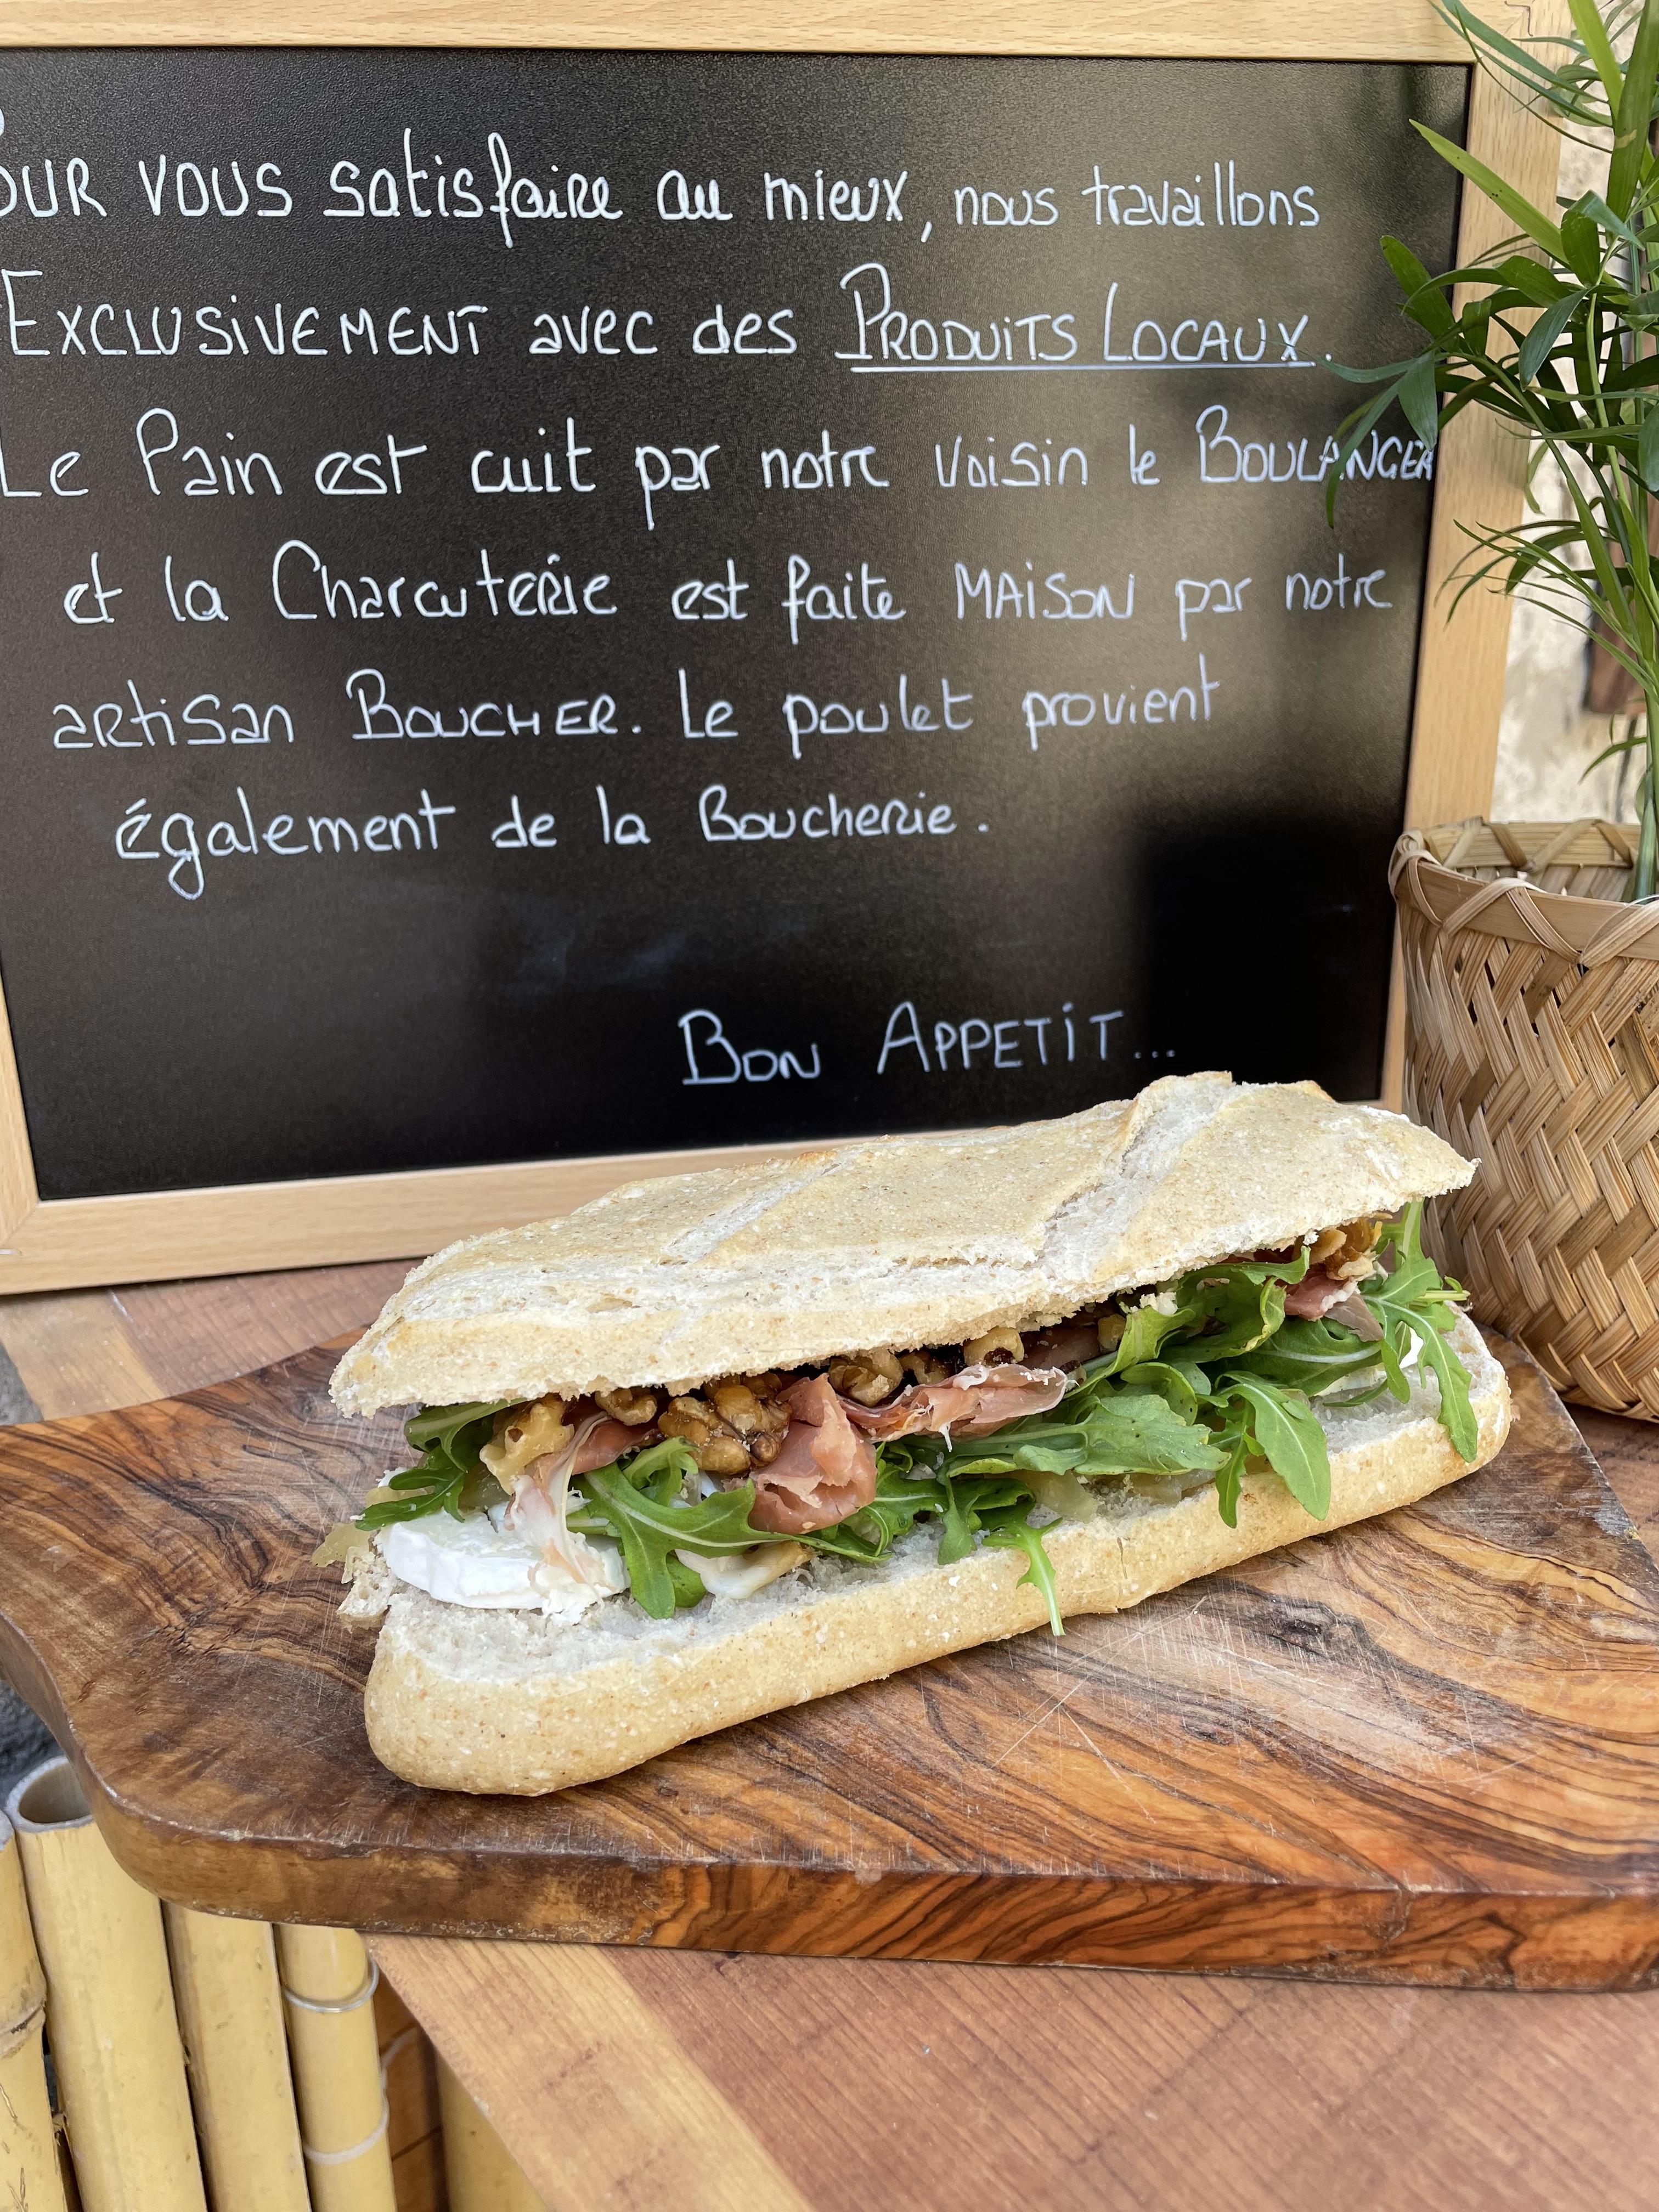 Pour vous satisfaire au mieux, nous travaillons
Exclusivement avec des Produits Locaux.
Le Pain est cuit par notre voisin le Boulanger
et la Charcuterie est faite MAISON par notre
artisan Boucher. Le poulet provient
également de la Boucherie.
Bon Appetit...